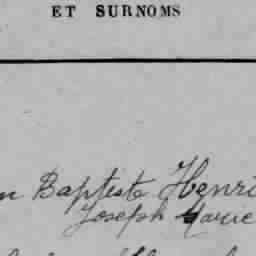 ET SURNOMS
n Baptiste Henri
Joseph Marie